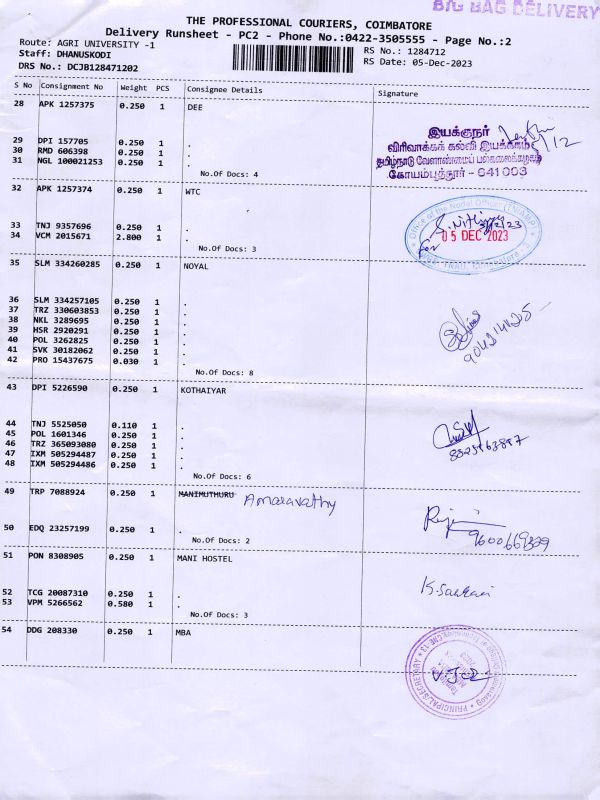 BIG BAG DELIVERY
THE PROFESSIONAL COURIERS, COIMBATORE
Delivery Runsheet - PC2 - Phone No.:0422-3505555 - Page No.:2
Route: AGRI UNIVERSITY -1
RS No.: 1284712
Staff: DHANUSKODI
RS Date: 05-Dec-2023
DRS No.: DCJB128471202
S No Consignment No Weight PCS Consignee Details Signature
28 APK 1257375 0.250 1 DEE
29 DPI 157705 0.250 1 .
30 RMD 606398 0.250 1 .
31 NGL 100021253 0.250 1 .
No.Of Docs: 4
இயக்குநர்
விரிவாக்கக் கல்வி இயக்ககம்
தமிழ்நாடு வேளாண்மைப் பல்கலைக்கழகம்
கோயம்புத்தூர் - 641003
32 APK 1257374 0.250 1 WTC
33 TNJ 9357696 0.250 1 .
34 VCM 2015671 2.800 1 .
No.Of Docs: 3
Office of the Nodal Officer
for
05 DEC 2023
35 SLM 334260285 0.250 1 NOYAL
36 SLM 334257105 0.250 1 .
37 TRZ 330603853 0.250 1 .
38 NKL 3289695 0.250 1 .
39 HSR 2920291 0.250 1 .
40 POL 3262825 0.250 1 .
41 SVK 30182062 0.250 1 .
42 PRO 15437675 0.030 1 .
No.Of Docs: 8
43 DPI 5226590 0.250 1 KOTHAIYAR
44 TNJ 5525050 0.110 1 .
45 POL 1601346 0.250 1 .
46 TRZ 365093080 0.250 1 .
47 IXM 505294487 0.250 1 .
48 IXM 505294486 0.250 1 .
No.Of Docs: 6
49 TRP 7088924 0.250 1 MANIMUTHURU Amaravathy
50 EDQ 23257199 0.250 1 .
No.Of Docs: 2
9600669309
51 PON 8308905 0.250 1 MANI HOSTEL
52 TCG 20087310 0.250 1 .
53 VPM 5266562 0.580 1 .
No.Of Docs: 3
54 DDG 208330 0.250 1 MBA
PRINCIPAL SECRETARY